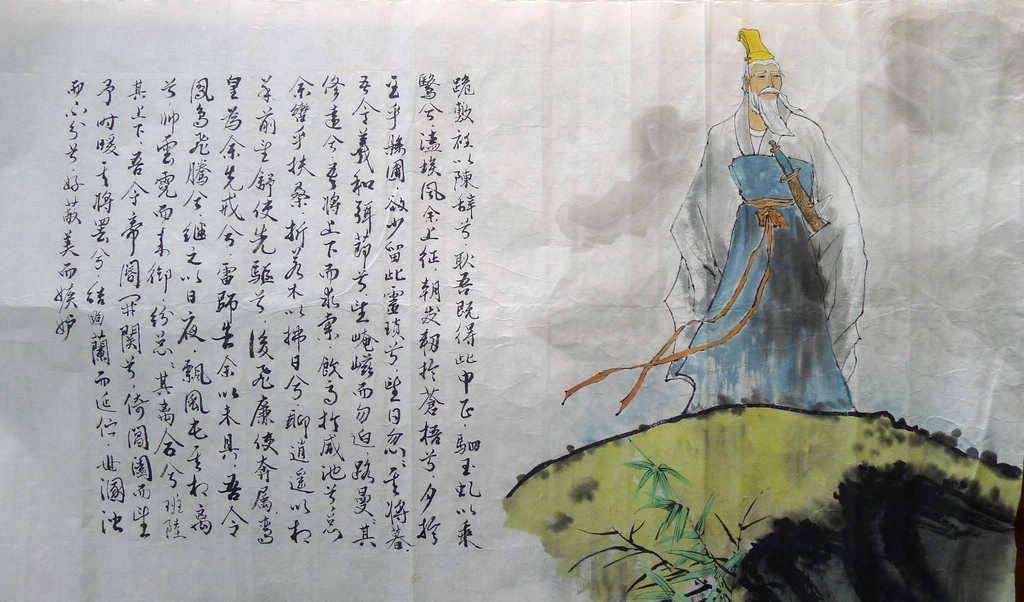 跪敷衽以陳辭兮耿吾既得此中正駟玉虬以乘
鷖兮溘埃風余上征朝發軔於蒼梧兮夕於
至乎縣圃欲少留此靈瑣兮望日忽々其將暮
吾令羲和弭節兮望崦嵫而勿迫路曼々其
修遠兮吾將上下而求索飲馬於咸池兮總
余轡乎扶桑折若木以拂日兮聊逍遙以相
羊前望舒使先驅兮後飛廉使奔屬鸞
皇為余先戒兮雷師告余以未具吾令
鳳鳥飛騰兮繼之以日夜飄風屯其相離
兮帥雲霓而來御紛總々其離合兮班陸
其上下吾令帝閽開關兮倚閶闔而望
予時曖其將罷兮結幽蘭而延佇世溷濁
而不分兮好蔽美而嫉妒